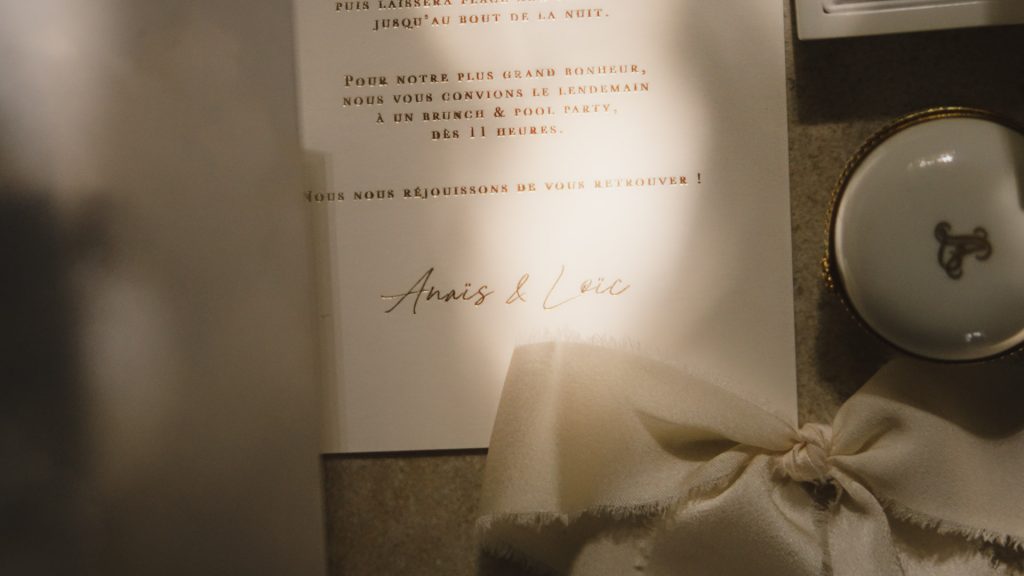 PUIS LAISSERA PLACE
JUSQU'AU BOUT DE LA NUIT.
POUR NOTRE PLUS GRAND BONHEUR,
NOUS VOUS CONVIONS LE LENDEMAIN
À UN BRUNCH & POOL PARTY,
DÈS 11 HEURES.
NOUS NOUS RÉJOUISSONS DE VOUS RETROUVER !
Anaïs & Loïc